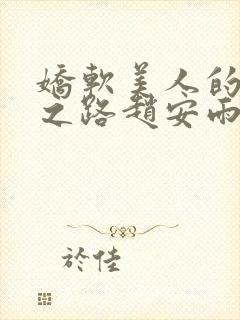 嬌軟美人的
之路趙安雨
於佳